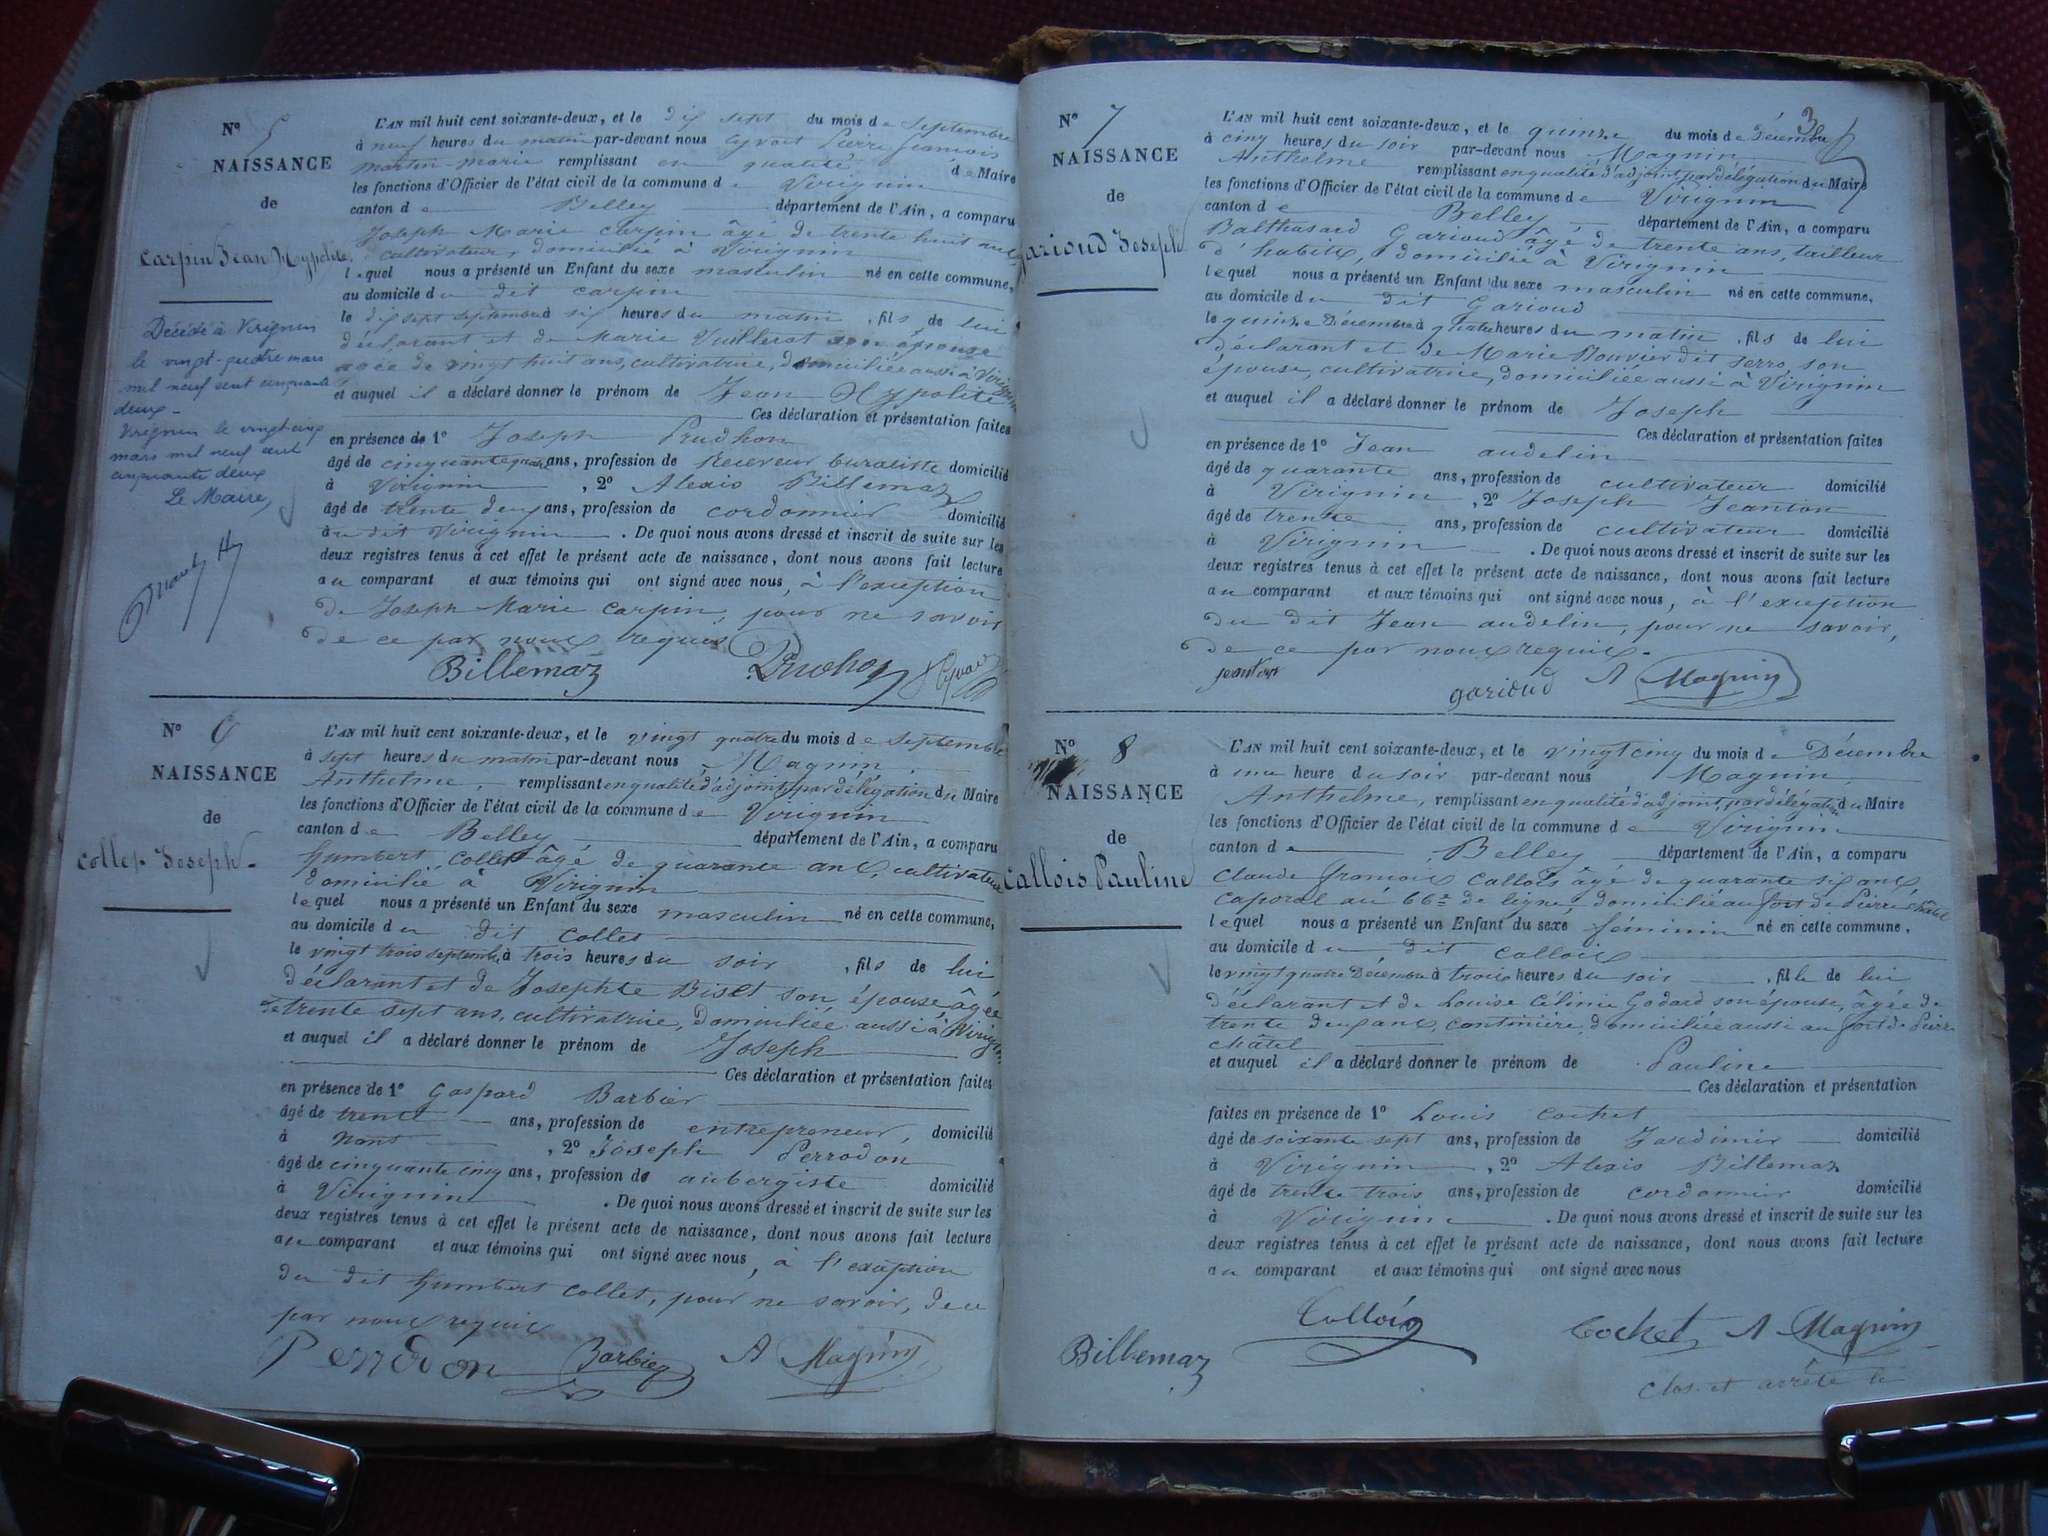 N° 5
NAISSANCE
de
Carpin Jean Hypolite.
Décédé à Virignin
le vingt-quatre mars
mil neuf cent cinquante
deux -
Virignin le vingt-cinq
mars mil neuf cent
cinquante deux
Le Maire,
L'AN mil huit cent soixante-deux, et le dix sept du mois de Septembre
à neuf heures du matin par-devant nous Pierre francois
martin marie remplissant en qualité de Maire
les fonctions d'Officier de l'état civil de la commune de Virignin
canton de Belley département de l'Ain, a comparu
Joseph Marie Carpin âgé de trente huit ans
cultivateur, domicilié à Virignin
lequel nous a présenté un Enfant du sexe masculin né en cette commune,
au domicile du dit carpin
le dix sept septembre à six heures du matin, fils de lui
déclarant et de Marie Vuillerat son épouse
agée de vingt huit ans, cultivatrice, domiciliée aussi à Virignin
et auquel il a déclaré donner le prénom de Jean Hypolite
Ces déclaration et présentation faites
en présence de 1° Joseph Prudhon
âgé de cinquante quatre ans, profession de Receveur buraliste domicilié
à Virignin, 2° Alexis Billemaz
âgé de trente deux ans, profession de cordonnier domicilié
au dit Virignin. De quoi nous avons dressé et inscrit de suite sur les
deux registres tenus à cet effet le présent acte de naissance, dont nous avons fait lecture
au comparant et aux témoins qui ont signé avec nous, à l'exception
de Joseph Marie Carpin, pour ne savoir
de ce par nous requis
Billemaz Prudhon
N° 6
NAISSANCE
de
Collet Joseph.
L'AN mil huit cent soixante-deux, et le vingt quatre du mois de Septembre
à sept heures du matin par-devant nous Magnin
Anthelme, remplissant en qualité d'adjoint, par délégation du Maire
les fonctions d'Officier de l'état civil de la commune de Virignin
canton de Belley département de l'Ain, a comparu
humbert Collet âgé de quarante ans, cultivateur
domicilié à Virignin
lequel nous a présenté un Enfant du sexe masculin né en cette commune,
au domicile du dit Collet
le vingt trois septembre à trois heures du soir, fils de lui
déclarant et de Josephte Biset son épouse, âgée
de trente sept ans, cultivatrice, domiciliée aussi à Virignin
et auquel il a déclaré donner le prénom de Joseph
Ces déclaration et présentation faites
en présence de 1° Gaspard Barbier
âgé de trente ans, profession de entrepreneur, domicilié
à Nant, 2° Joseph Perrodon
âgé de cinquante cinq ans, profession de aubergiste domicilié
à Virignin. De quoi nous avons dressé et inscrit de suite sur les
deux registres tenus à cet effet le présent acte de naissance, dont nous avons fait lecture
au comparant et aux témoins qui ont signé avec nous, à l'exception
du dit humbert Collet, pour ne savoir, de ce
par nous requis
Perrodon Barbier A Magnin
3
N° 7
NAISSANCE
de
Garioud Joseph
L'AN mil huit cent soixante-deux, et le quinze du mois de Décembre
à cinq heures du soir par-devant nous Magnin
Anthelme remplissant en qualité d'adjoint par délégation du Maire
les fonctions d'Officier de l'état civil de la commune de Virignin
canton de Belley département de l'Ain, a comparu
Balthasard Garioud âgé de trente ans, tailleur
d'habits, domicilié à Virignin
lequel nous a présenté un Enfant du sexe masculin né en cette commune,
au domicile du dit Garioud
le quinze Décembre à quatre heures du matin, fils de lui
déclarant et de Marie Bouvier dit serro, son
épouse, cultivatrice, domiciliée aussi à Virignin
et auquel il a déclaré donner le prénom de Joseph
Ces déclaration et présentation faites
en présence de 1° Jean audelin
âgé de quarante ans, profession de cultivateur domicilié
à Virignin, 2° Joseph Jeanton
âgé de trente ans, profession de cultivateur domicilié
à Virignin. De quoi nous avons dressé et inscrit de suite sur les
deux registres tenus à cet effet le présent acte de naissance, dont nous avons fait lecture
au comparant et aux témoins qui ont signé avec nous, à l'exception
du dit Jean audelin, pour ne savoir,
de ce par nous requis.
jeanton garioud A Magnin
N° 8
NAISSANCE
de
Callois Pauline
L'AN mil huit cent soixante-deux, et le vingt cinq du mois de Décembre
à une heure du soir par-devant nous Magnin
Anthelme, remplissant en qualité d'adjoint, par délégation du Maire
les fonctions d'Officier de l'état civil de la commune de Virignin
canton de Belley département de l'Ain, a comparu
Claude francois Callois âgé de quarante six ans
Caporal au 66e de ligne, domicilié au fort de Pierre châtel
lequel nous a présenté un Enfant du sexe féminin né en cette commune.
au domicile du dit Callois
le vingt quatre Décembre à trois heures du soir, fille de lui
déclarant et de Louise Célinie Godard son épouse, âgée de
trente deux ans, cantinière, domiciliée aussi au fort de Pierre
châtel
et auquel il a déclaré donner le prénom de Pauline
Ces déclaration et présentation
faites en présence de 1° Louis Cochet
âgé de soixante sept ans, profession de Jardinier domicilié
à Virignin, 2° Alexis Billemaz
âgé de trente trois ans, profession de cordonnier domicilié
à Virignin. De quoi nous avons dressé et inscrit de suite sur les
deux registres tenus à cet effet le présent acte de naissance, dont nous avons fait lecture
au comparant et aux témoins qui ont signé avec nous
Billemaz Callois Cochet A Magnin
Clos et arrêté le